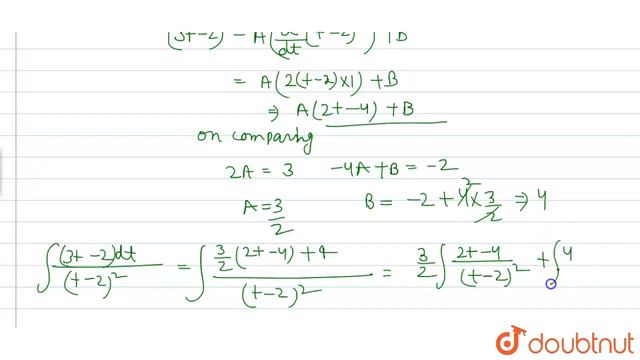 (3t-2) = A(d/dt (t-2)²) + B
= A(2(t-2)×1) + B
⇒ A(2t-4) + B
on comparing
2A = 3 -4A+B = -2
A = 3/2 B = -2 + 4² × 3/2 ⇒ 4
∫ (3t-2)dt/(t-2)² = ∫ (3/2 (2t-4) + 4)/(t-2)² = 3/2 ∫ (2t-4)/(t-2)² + ∫ 4
doubtnut